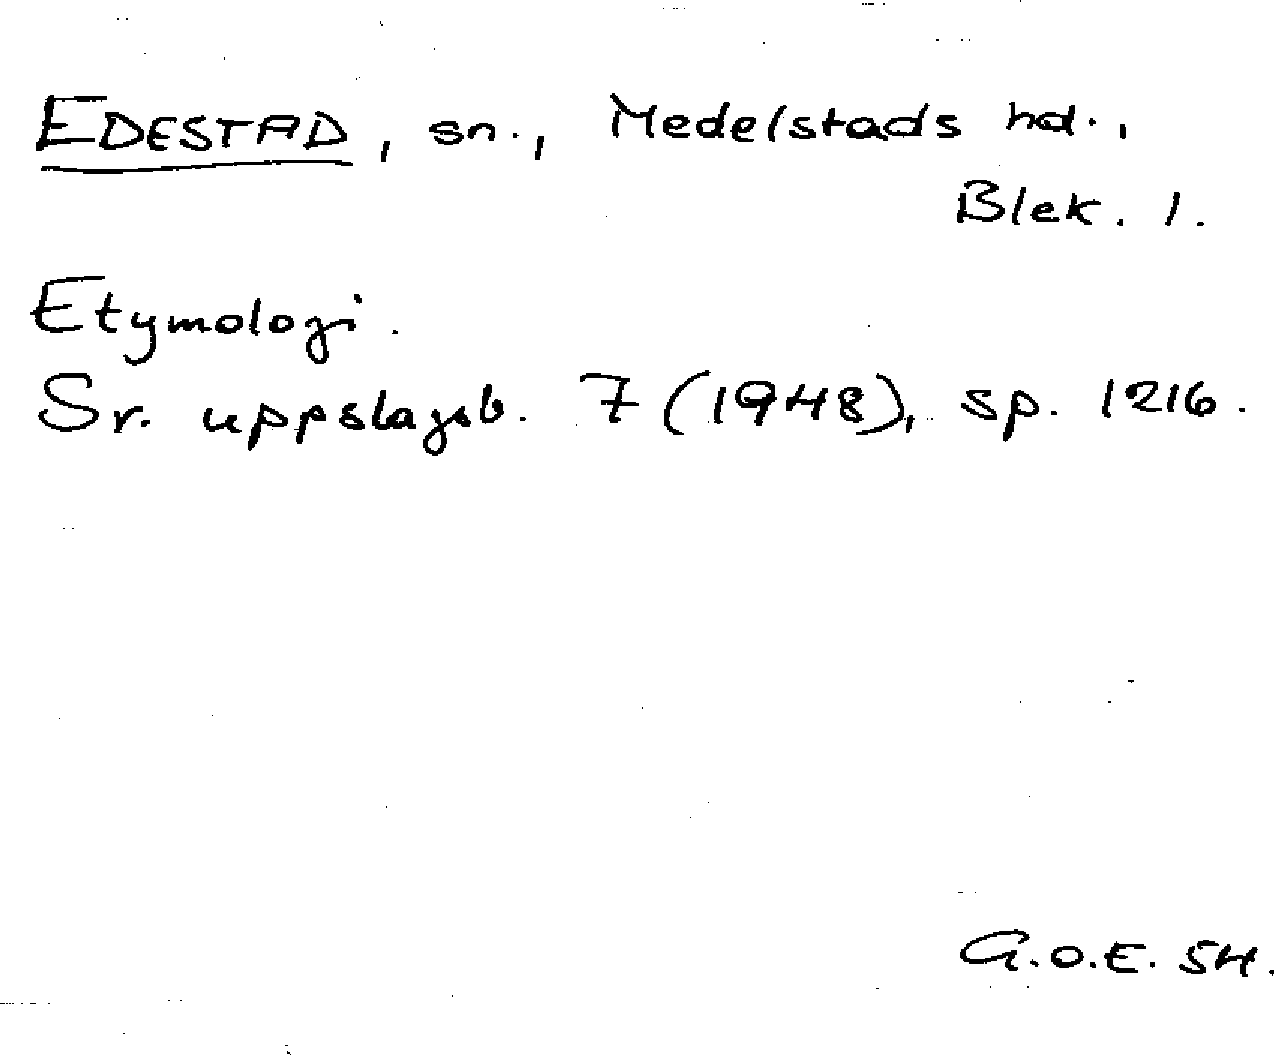 EDESTAD, sn., Medelstads hd.,
Blek. l.
Etymologi.
Sv. uppslagsb. 7 (1948), sp. 1216.
G.O.E. 54.